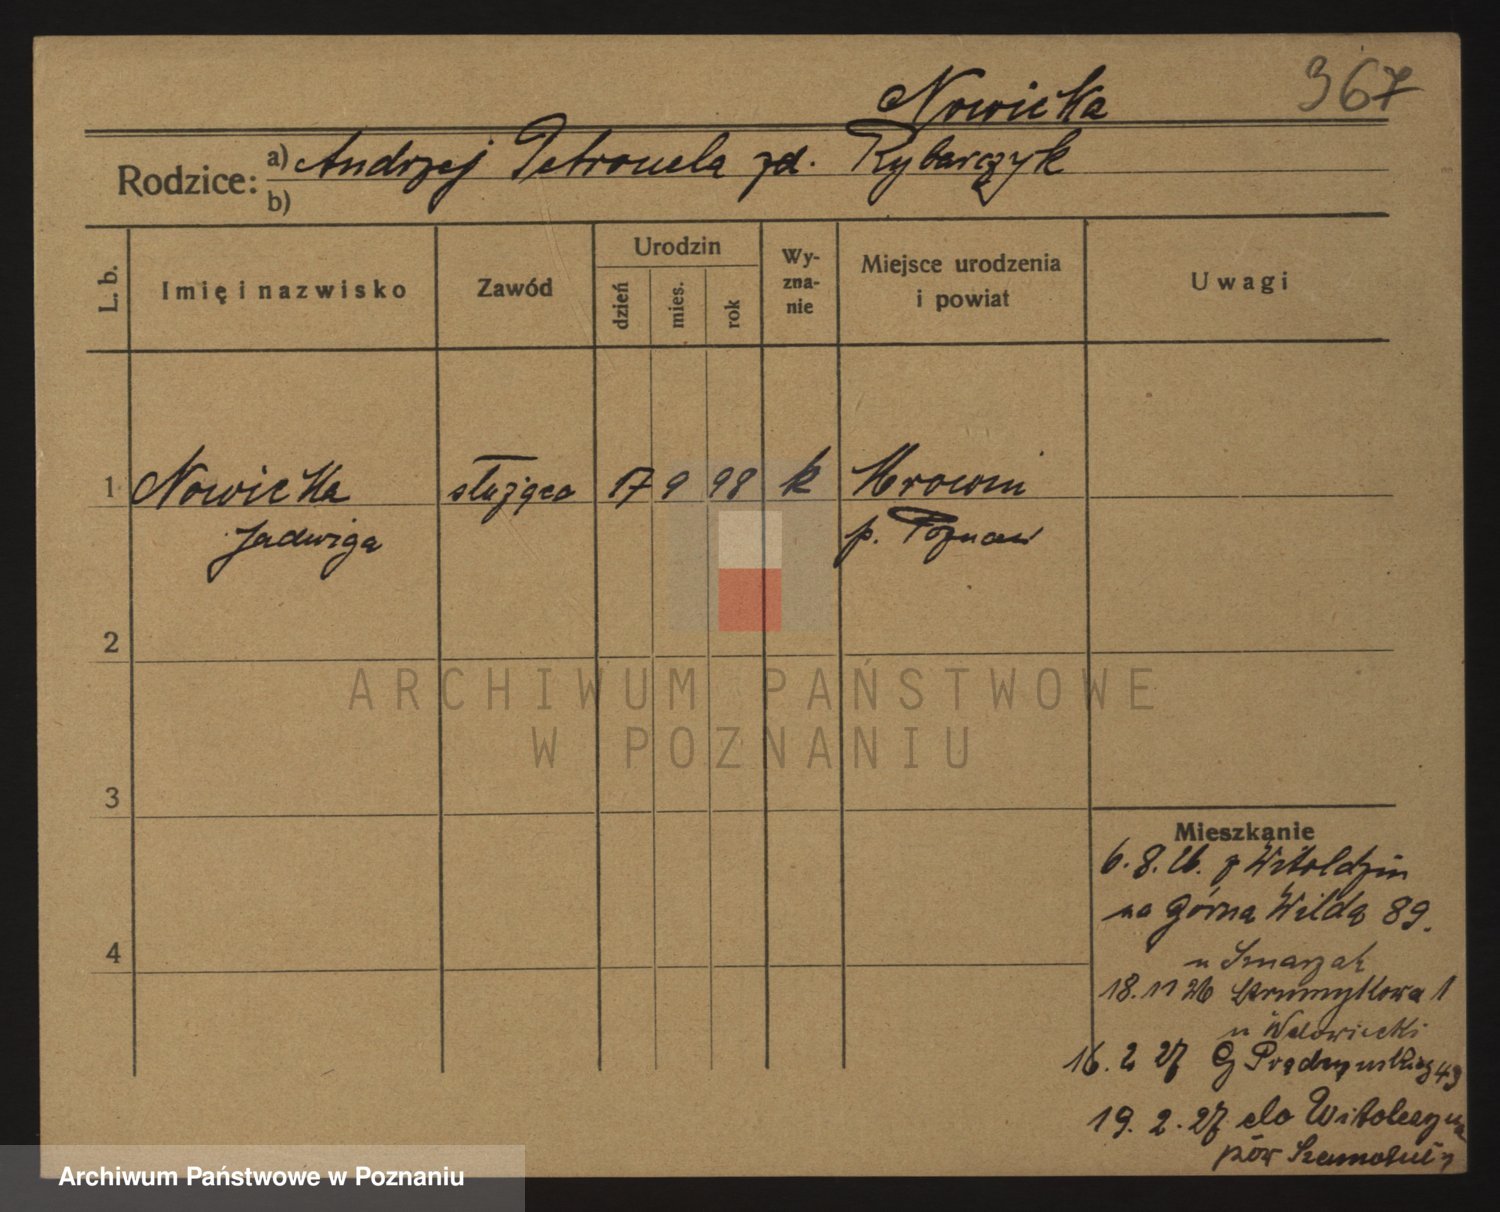 Nowicka 367
Rodzice: a) Andrzej Petronela zd. Rybarczyk
b)
L. b. Imię i nazwisko Zawód Urodzin dzień mies. rok Wyznanie Miejsce urodzenia i powiat Uwagi
1 Nowicka służąca 17 9 98 k Mrowin
Jadwiga p. Poznań
2
3
4
Mieszkanie
6.8.26. z Witoldzin
na Górna Wilda 89.
u Smarzak
18.11 26 1
u
16. 2 27 G Prądzyńskiego 49
19. 2. 27 do Witoldzyna
pow Szamotuły
ARCHIWUM PAŃSTWOWE
W POZNANIU
Archiwum Państwowe w Poznaniu